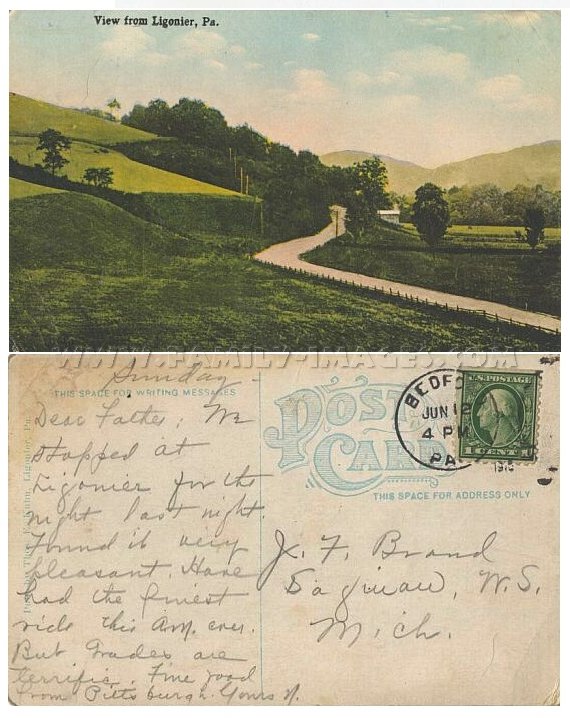 View from Ligonier, Pa.
WWW.FAMILY-IMAGES.COM
Sunday
THIS SPACE FOR WRITING MESSAGES
Dear Father; We
stopped at
Ligonier for the
night last night.
Found it very
pleasant. Have
had the finest
ride this A.M. ever.
But Grades are
terrific. Fine road
from Pittsburgh. Yours
POST
CARD
THIS SPACE FOR ADDRESS ONLY
BEDFO
JUN 12
4 P
PA
U.S. POSTAGE
1 CENT 1
J. F. Brand
Saginaw, W.S.
Mich.
Ligonier, Pa.